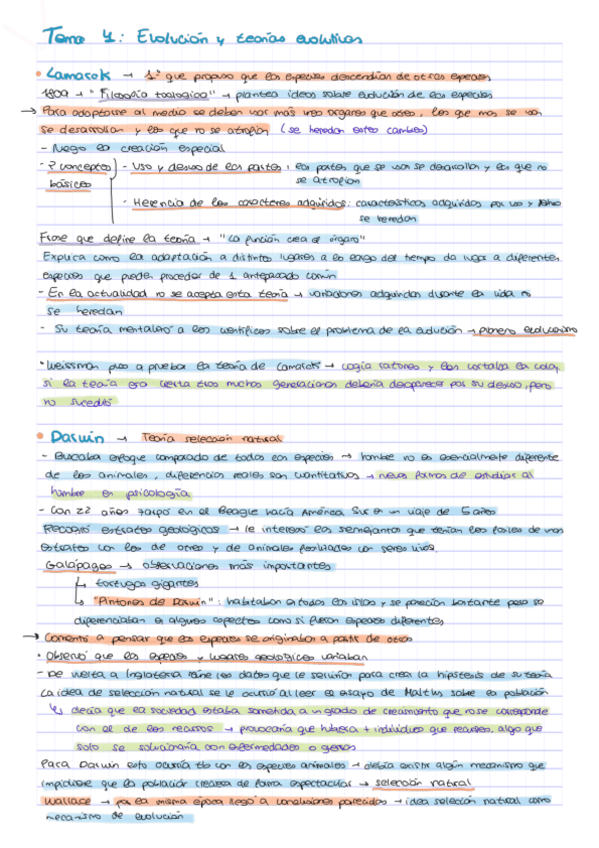 Tema 1: Evolución y teorías evolutivas
• Lamarck → 1º que propuso que las especies descendían de otras especies
1809 → "Filosofía zoologica" → plantea ideas sobre evolución de las especies
→ Para adaptarse al medio se deben usar más unos organos que otros, los que mas se usan
se desarrollan y los que no se atrofian (se heredan estos cambios)
- Nego la creación especial
- 2 conceptos básicos
- Uso y desuso de las partes: las partes que se usan se desarrollan y las que no
se atrofian
- Herencia de los caracteres adquiridos: características adquiridas por uso y
se heredan
Frase que define la teoría → "La función crea el órgano"
Explica como la adaptación a distintos lugares a lo largo del tiempo da lugar a diferentes
especies que pueden proceder de 1 antepasado común
- En la actualidad no se acepta esta teoría → variaciones adquiridas durante la vida no
se heredan
- Su teoría mentalizó a los científicos sobre el problema de la evolución → pionero evolucionismo
• Weissman puso a prueba la teoría de Lamarck → cogía ratones y les cortaba la cola,
si la teoría era cierta tras muchas generaciones debería desaparecer por su desuso, pero
no sucedió
• Darwin → Teoría selección natural
- Buscaba enfoque comparado de todas las especies → hombre no es esencialmente diferente
de los animales, diferencias reales son cuantitativas → nueva formas de estudiar al
hombre en psicología
- Con 22 años zarpó en el Beagle hacía América Sur en un viaje de 5 años
Recogió estratos geológicos → le intereso las semejanzas que tenían los fosiles de unos
estratos con los de otros y de animales fosilizados con seres vivos.
Galápagos → observaciones más importantes
↳ tortugas gigantes
↳ "Pinzones de Darwin": habitaban en todas las islas y se parecían bastante pero se
diferenciaban en algunos aspectos como si fueran especies diferentes
→ Comenzó a pensar que las especies se originaban a partir de otras
• Observó que las especies y lugares geológicos variaban
- De vuelta a Inglaterra reúne los datos que le servirían para crear la hipótesis de su teoría
La idea de selección natural se le ocurrió al leer el ensayo de Maltus sobre la población
↳ decía que la sociedad estaba sometida a un grado de crecimiento que no se corresponde
con el de los recursos → provocaría que hubiera + individuos que recursos, algo que
solo se solucionaría con enfermedades o guerras
Para Darwin esto ocurría tb con las especies animales → debía existir algún mecanismo que
impidiese que la población creciera de forma espectacular → selección natural
Wallace → por la misma época llegó a conclusiones parecidas → idea selección natural como
mecanismo de evolución